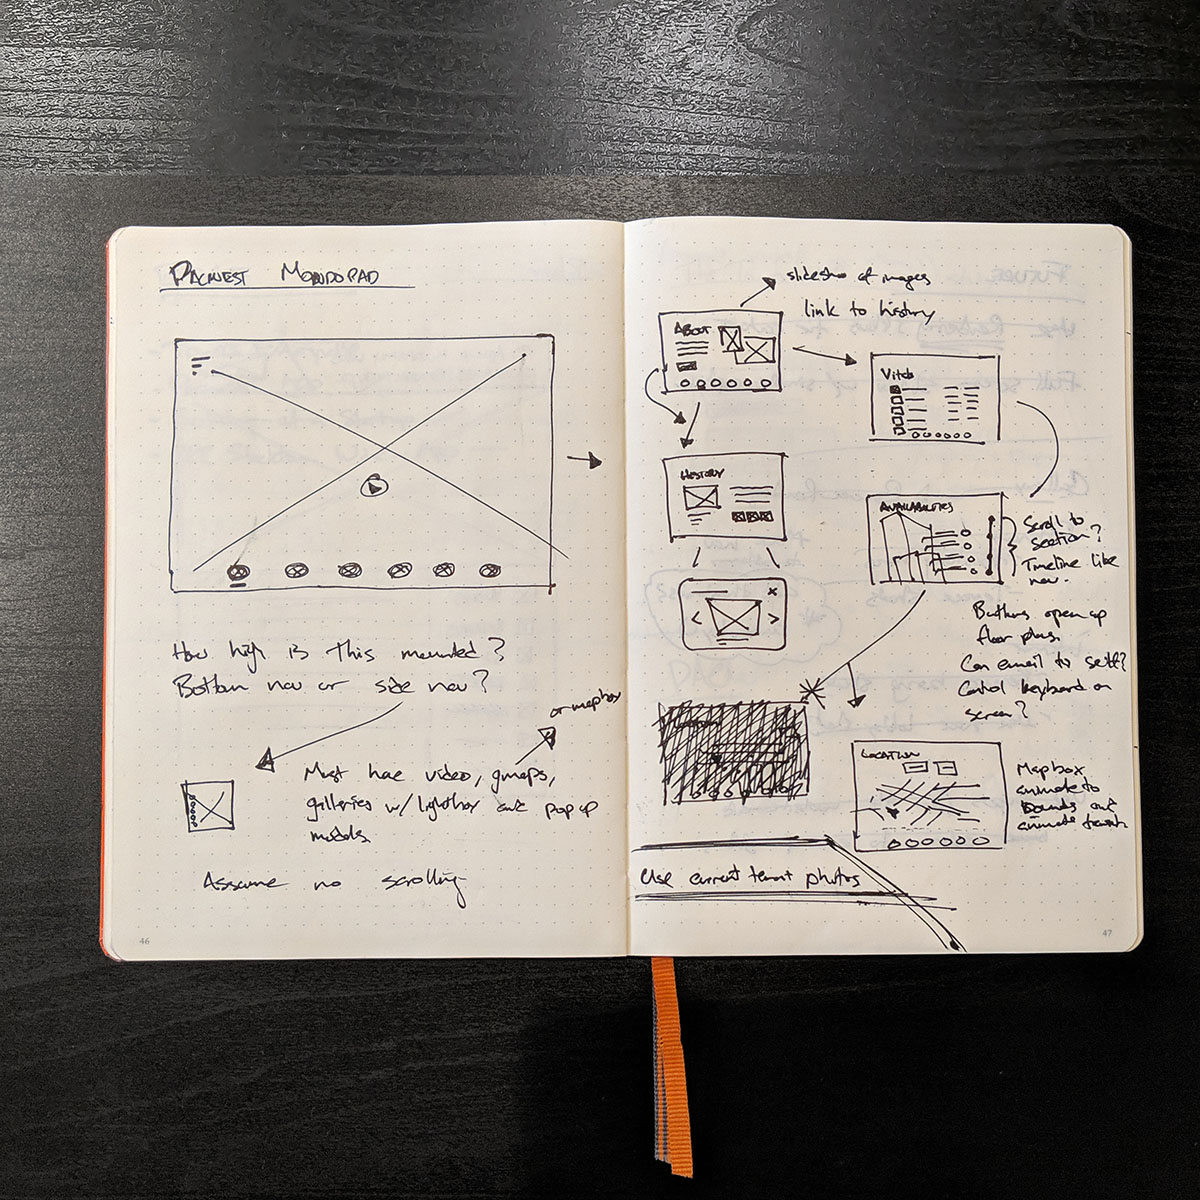 PACWEST MONDOPAD
How high is this mounted?
Bottom nav or side nav?
or mapbox
Must have video, gmaps,
galleries w/ lightbox and pop up
modals.
Assume no scrolling
46
slideshow of images
link to history
ABOUT
HISTORY
AVAILABILITIES
Scroll to
section?
Timeline like
nav.
Buttons open up
floor plans.
Can email to self?
Control keyboard on
screen?
LOCATION
Mapbox
animate to
bounds and
animate
Use current tenant photos
47